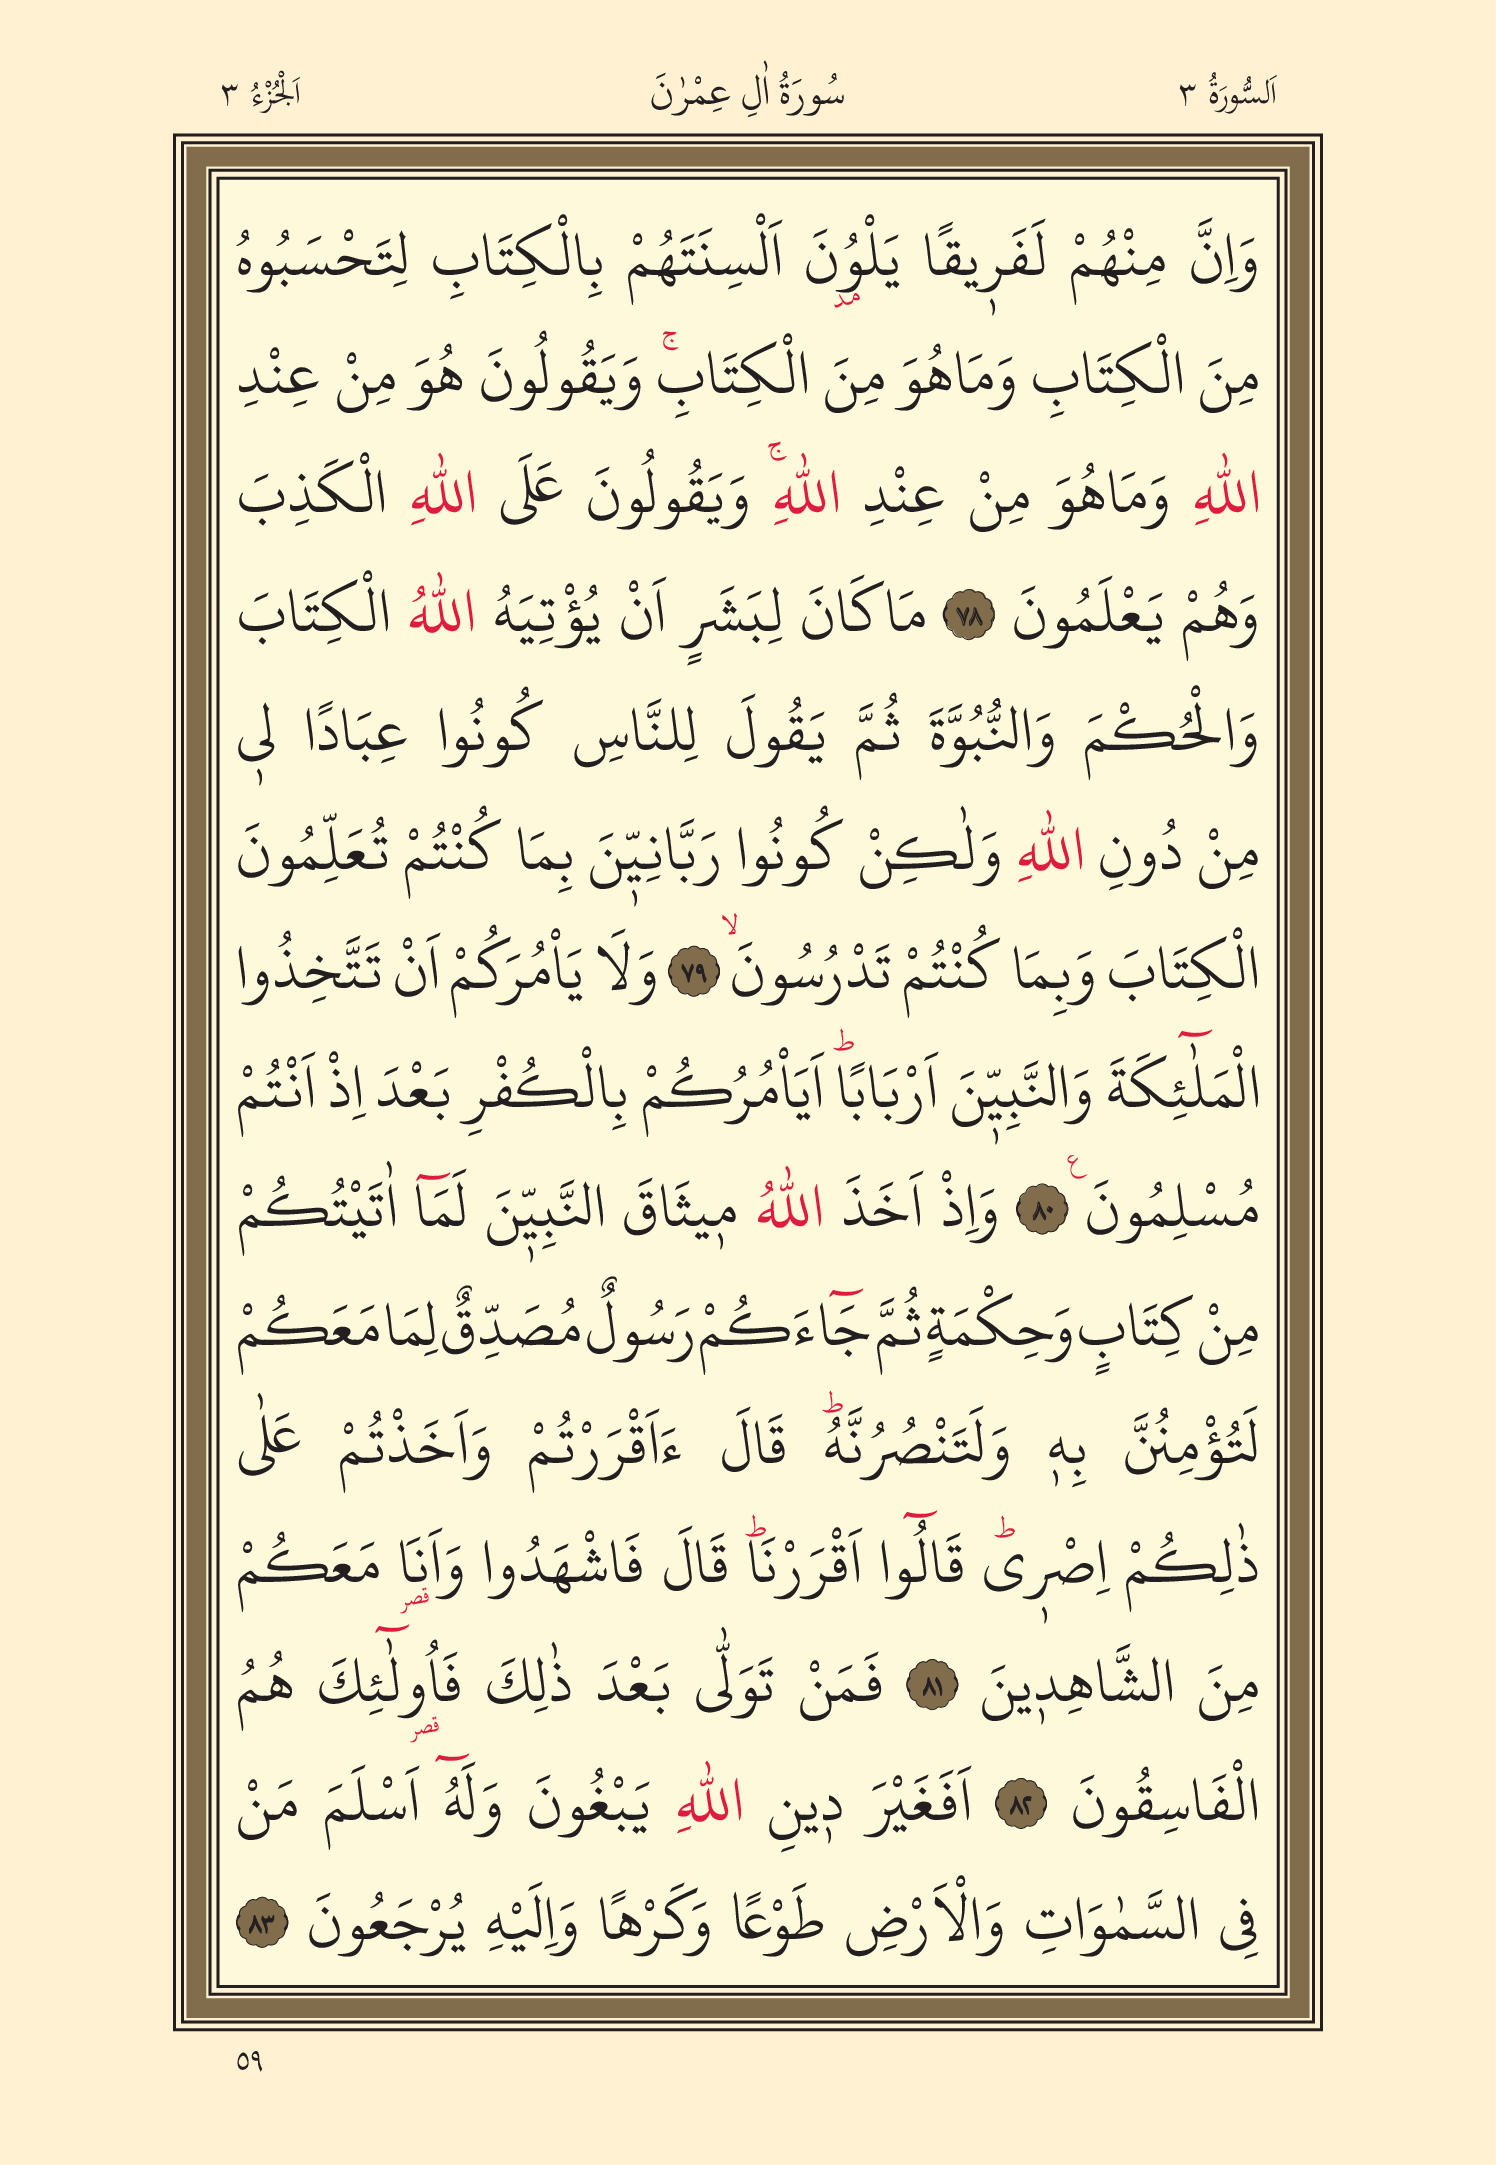 اَلسُّورَةُ ٣ سُورَةُ اٰلِ عِمْرٰنَ اَلْجُزْءُ ٣
وَاِنَّ مِنْهُمْ لَفَرٖيقًا يَلْوُنَ اَلْسِنَتَهُمْ بِالْكِتَابِ لِتَحْسَبُوهُ
مد
مِنَ الْكِتَابِ وَمَاهُوَ مِنَ الْكِتَابِۚ وَيَقُولُونَ هُوَ مِنْ عِنْدِ
اللّٰهِ وَمَاهُوَ مِنْ عِنْدِ اللّٰهِۚ وَيَقُولُونَ عَلَى اللّٰهِ الْكَذِبَ
وَهُمْ يَعْلَمُونَ ٧٨ مَاكَانَ لِبَشَرٍ اَنْ يُؤْتِيَهُ اللّٰهُ الْكِتَابَ
وَالْحُكْمَ وَالنُّبُوَّةَ ثُمَّ يَقُولَ لِلنَّاسِ كُونُوا عِبَادًا لٖى
مِنْ دُونِ اللّٰهِ وَلٰكِنْ كُونُوا رَبَّانِيّٖنَ بِمَا كُنْتُمْ تُعَلِّمُونَ
الْكِتَابَ وَبِمَا كُنْتُمْ تَدْرُسُونَۙ ٧٩ وَلَا يَاْمُرَكُمْ اَنْ تَتَّخِذُوا
الْمَلٰٓئِكَةَ وَالنَّبِيّٖنَ اَرْبَابًاؕ اَيَاْمُرُكُمْ بِالْكُفْرِ بَعْدَ اِذْ اَنْتُمْ
مُسْلِمُونَ ع ٨٠ وَاِذْ اَخَذَ اللّٰهُ مٖيثَاقَ النَّبِيّٖنَ لَمَٓا اٰتَيْتُكُمْ
مِنْ كِتَابٍ وَحِكْمَةٍ ثُمَّ جَٓاءَكُمْ رَسُولٌ مُصَدِّقٌ لِمَا مَعَكُمْ
لَتُؤْمِنُنَّ بِهٖ وَلَتَنْصُرُنَّهُؕ قَالَ ءَاَقْرَرْتُمْ وَاَخَذْتُمْ عَلٰى
ذٰلِكُمْ اِصْرٖىؕ قَالُٓوا اَقْرَرْنَاؕ قَالَ فَاشْهَدُوا وَاَنَا مَعَكُمْ
قصر
مِنَ الشَّاهِدٖينَ ٨١ فَمَنْ تَوَلّٰى بَعْدَ ذٰلِكَ فَاُولٰٓئِكَ هُمُ
قصر
الْفَاسِقُونَ ٨٢ اَفَغَيْرَ دٖينِ اللّٰهِ يَبْغُونَ وَلَهُٓ اَسْلَمَ مَنْ
فِى السَّمٰوَاتِ وَالْاَرْضِ طَوْعًا وَكَرْهًا وَاِلَيْهِ يُرْجَعُونَ ٨٣
٥٩